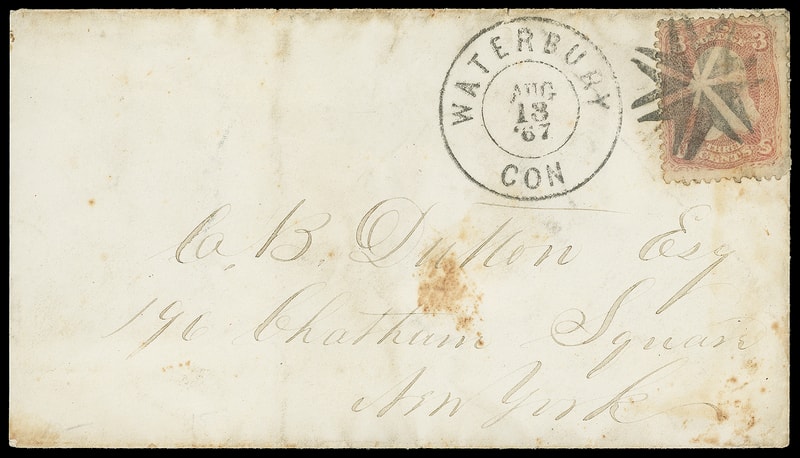 WATERBURY
AUG
13
'67
CON
3
C. B. Dutton Esq
196 Chatham Square
New York